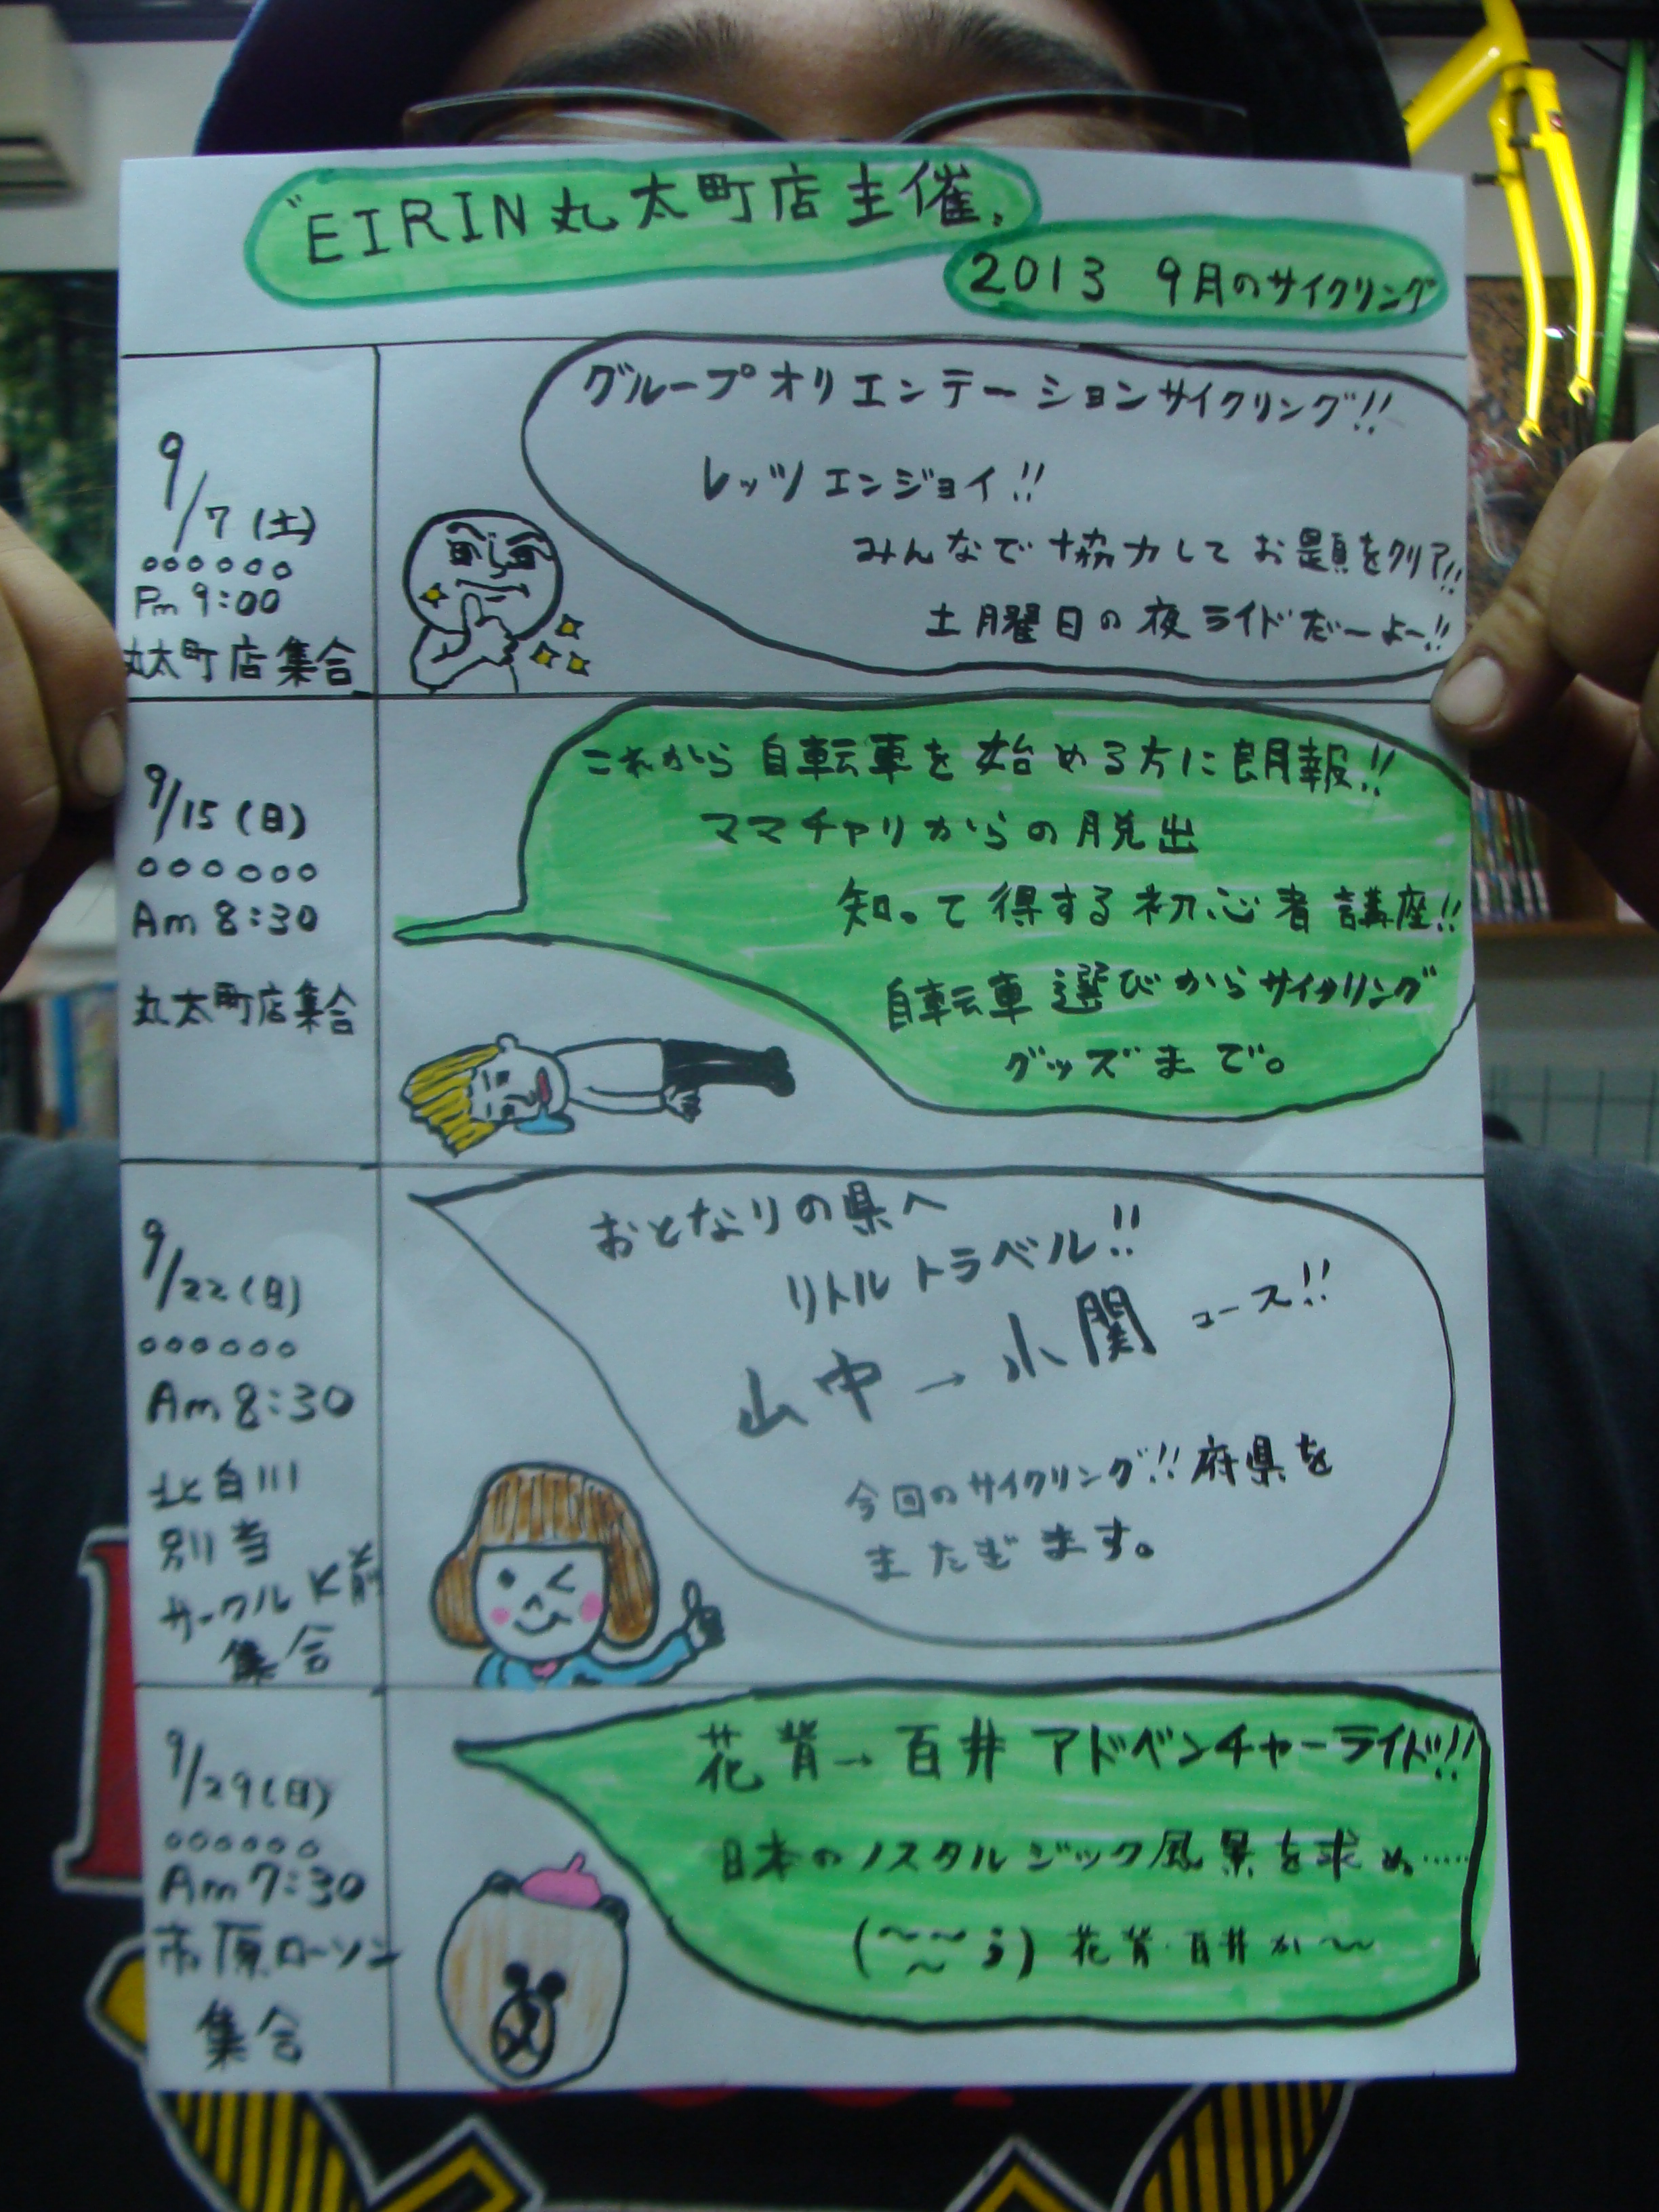 "EIRIN丸太町店主催〟
2013 9月のサイクリング
9/7(土)
Pm 9:00
丸太町店集合
グループオリエンテーションサイクリング!!
レッツエンジョイ!!
みんなで協力してお題をクリア!!
土月曜日の夜ライドだーよー!!
9/15(日)
Am 8:30
丸太町店集合
これから自転車を始める方に朗報!!
ママチャリからの脱出
知って得する初心者講座!!
自転車選びからサイクリング
グッズまで。
9/22(日)
Am 8:30
北白川
別当
サークルK前
集合
おとなりの県へ
リトルトラベル!!
山中→小関コース!!
今回のサイクリング!!府県を
またぎます。
9/29(日)
Am 7:30
市原ローソン
集合
花背→百井アドベンチャーライド!!
日本のノスタルジック風景を求め……
花背・百井か〜〜